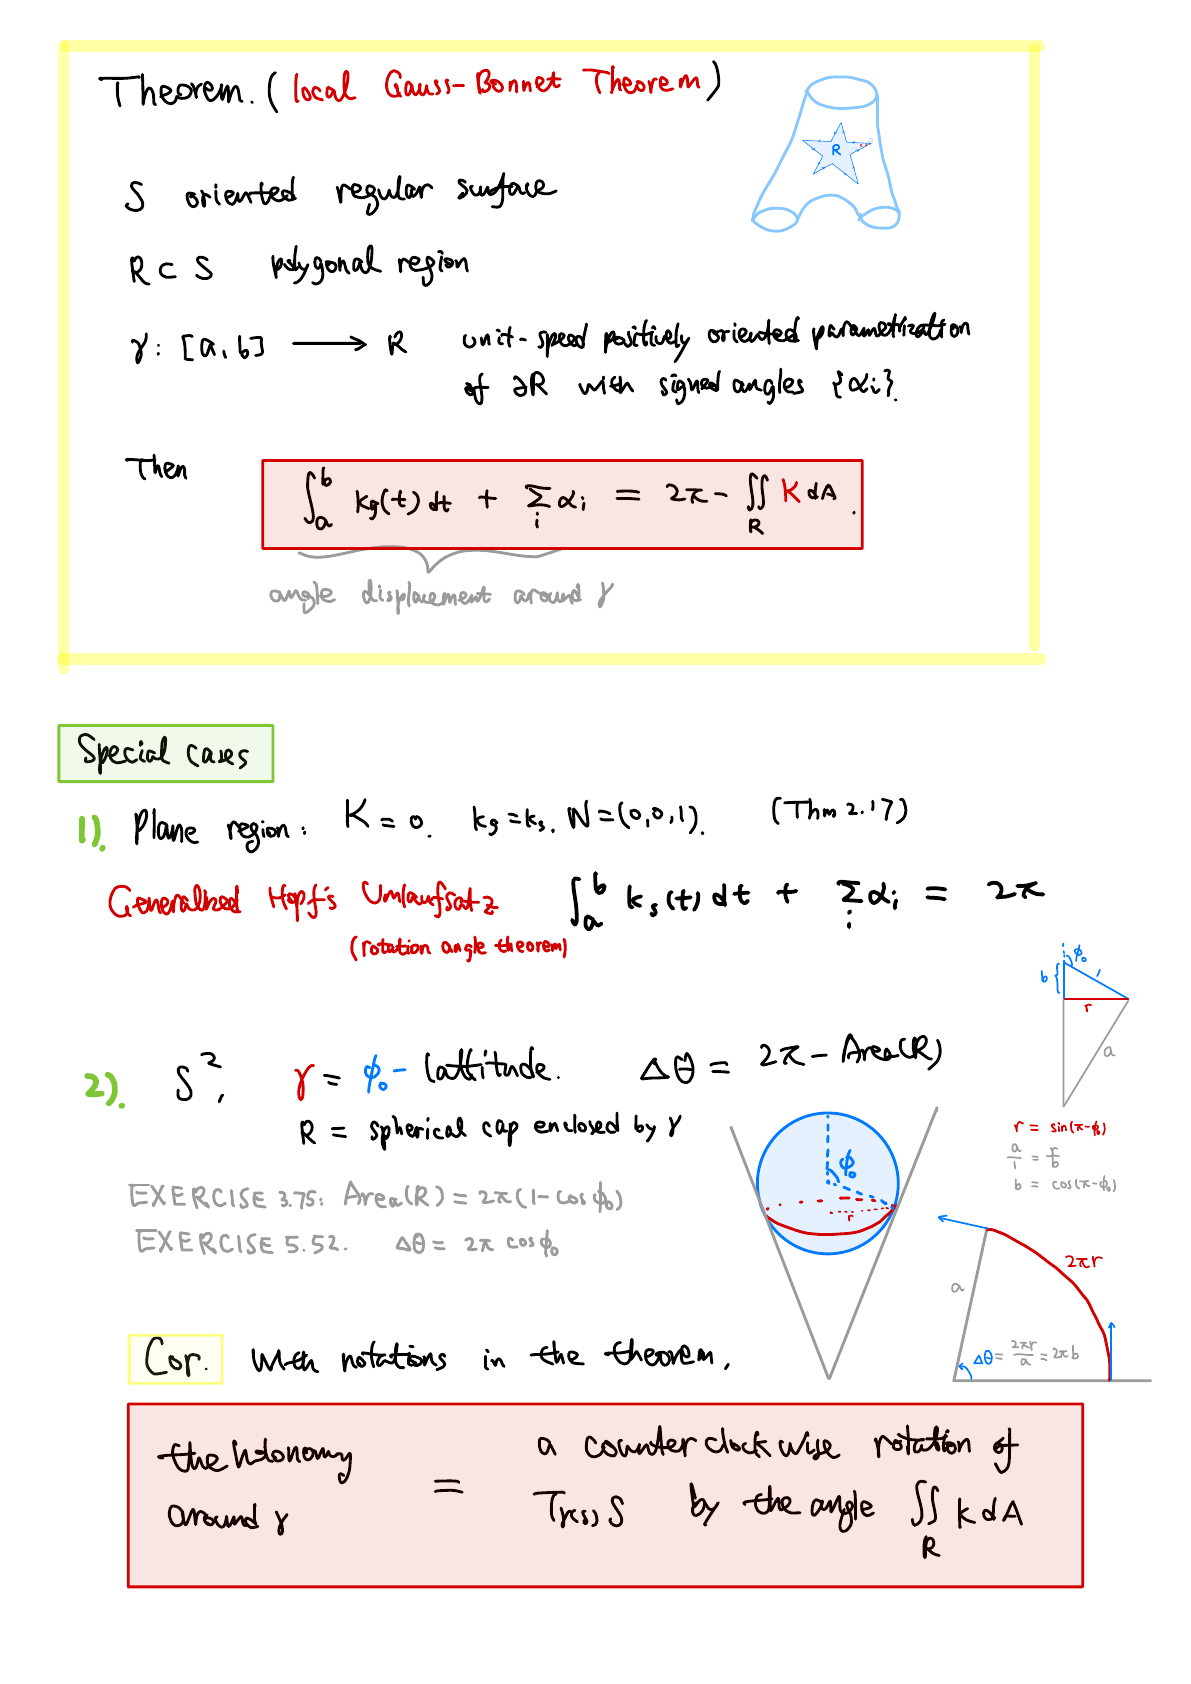 Theorem. (local Gauss-Bonnet Theorem)
R
S oriented regular surface
R ⊂ S polygonal region
γ: [a, b] ⟶ R unit-speed positively oriented parametrization
of ∂R with signed angles {αi}.
Then ∫_a^b kg(t) dt + Σ_i αi = 2π - ∬_R K dA.
angle displacement around γ
Special cases
1). Plane region: K = 0. kg = ks. N = (0, 0, 1). (Thm 2.17)
Generalized Hopf's Umlaufsatz ∫_a^b ks(t) dt + Σ_i αi = 2π
(rotation angle theorem)
φ₀
b
1
r
a
2). S², γ = φ₀ - lattitude. Δθ = 2π - Area(R)
R = spherical cap enclosed by γ
r = sin(π-φ₀)
a/1 = r/b
b = cos(π-φ₀)
φ₀
r
EXERCISE 3.75: Area(R) = 2π(1 - cos φ₀)
EXERCISE 5.52. Δθ = 2π cos φ₀
2πr
a
Δθ = 2πr/a = 2πb
Cor. With notations in the theorem,
the holonomy around γ = a counterclockwise rotation of
T_{γ(s)} S by the angle ∬_R K dA